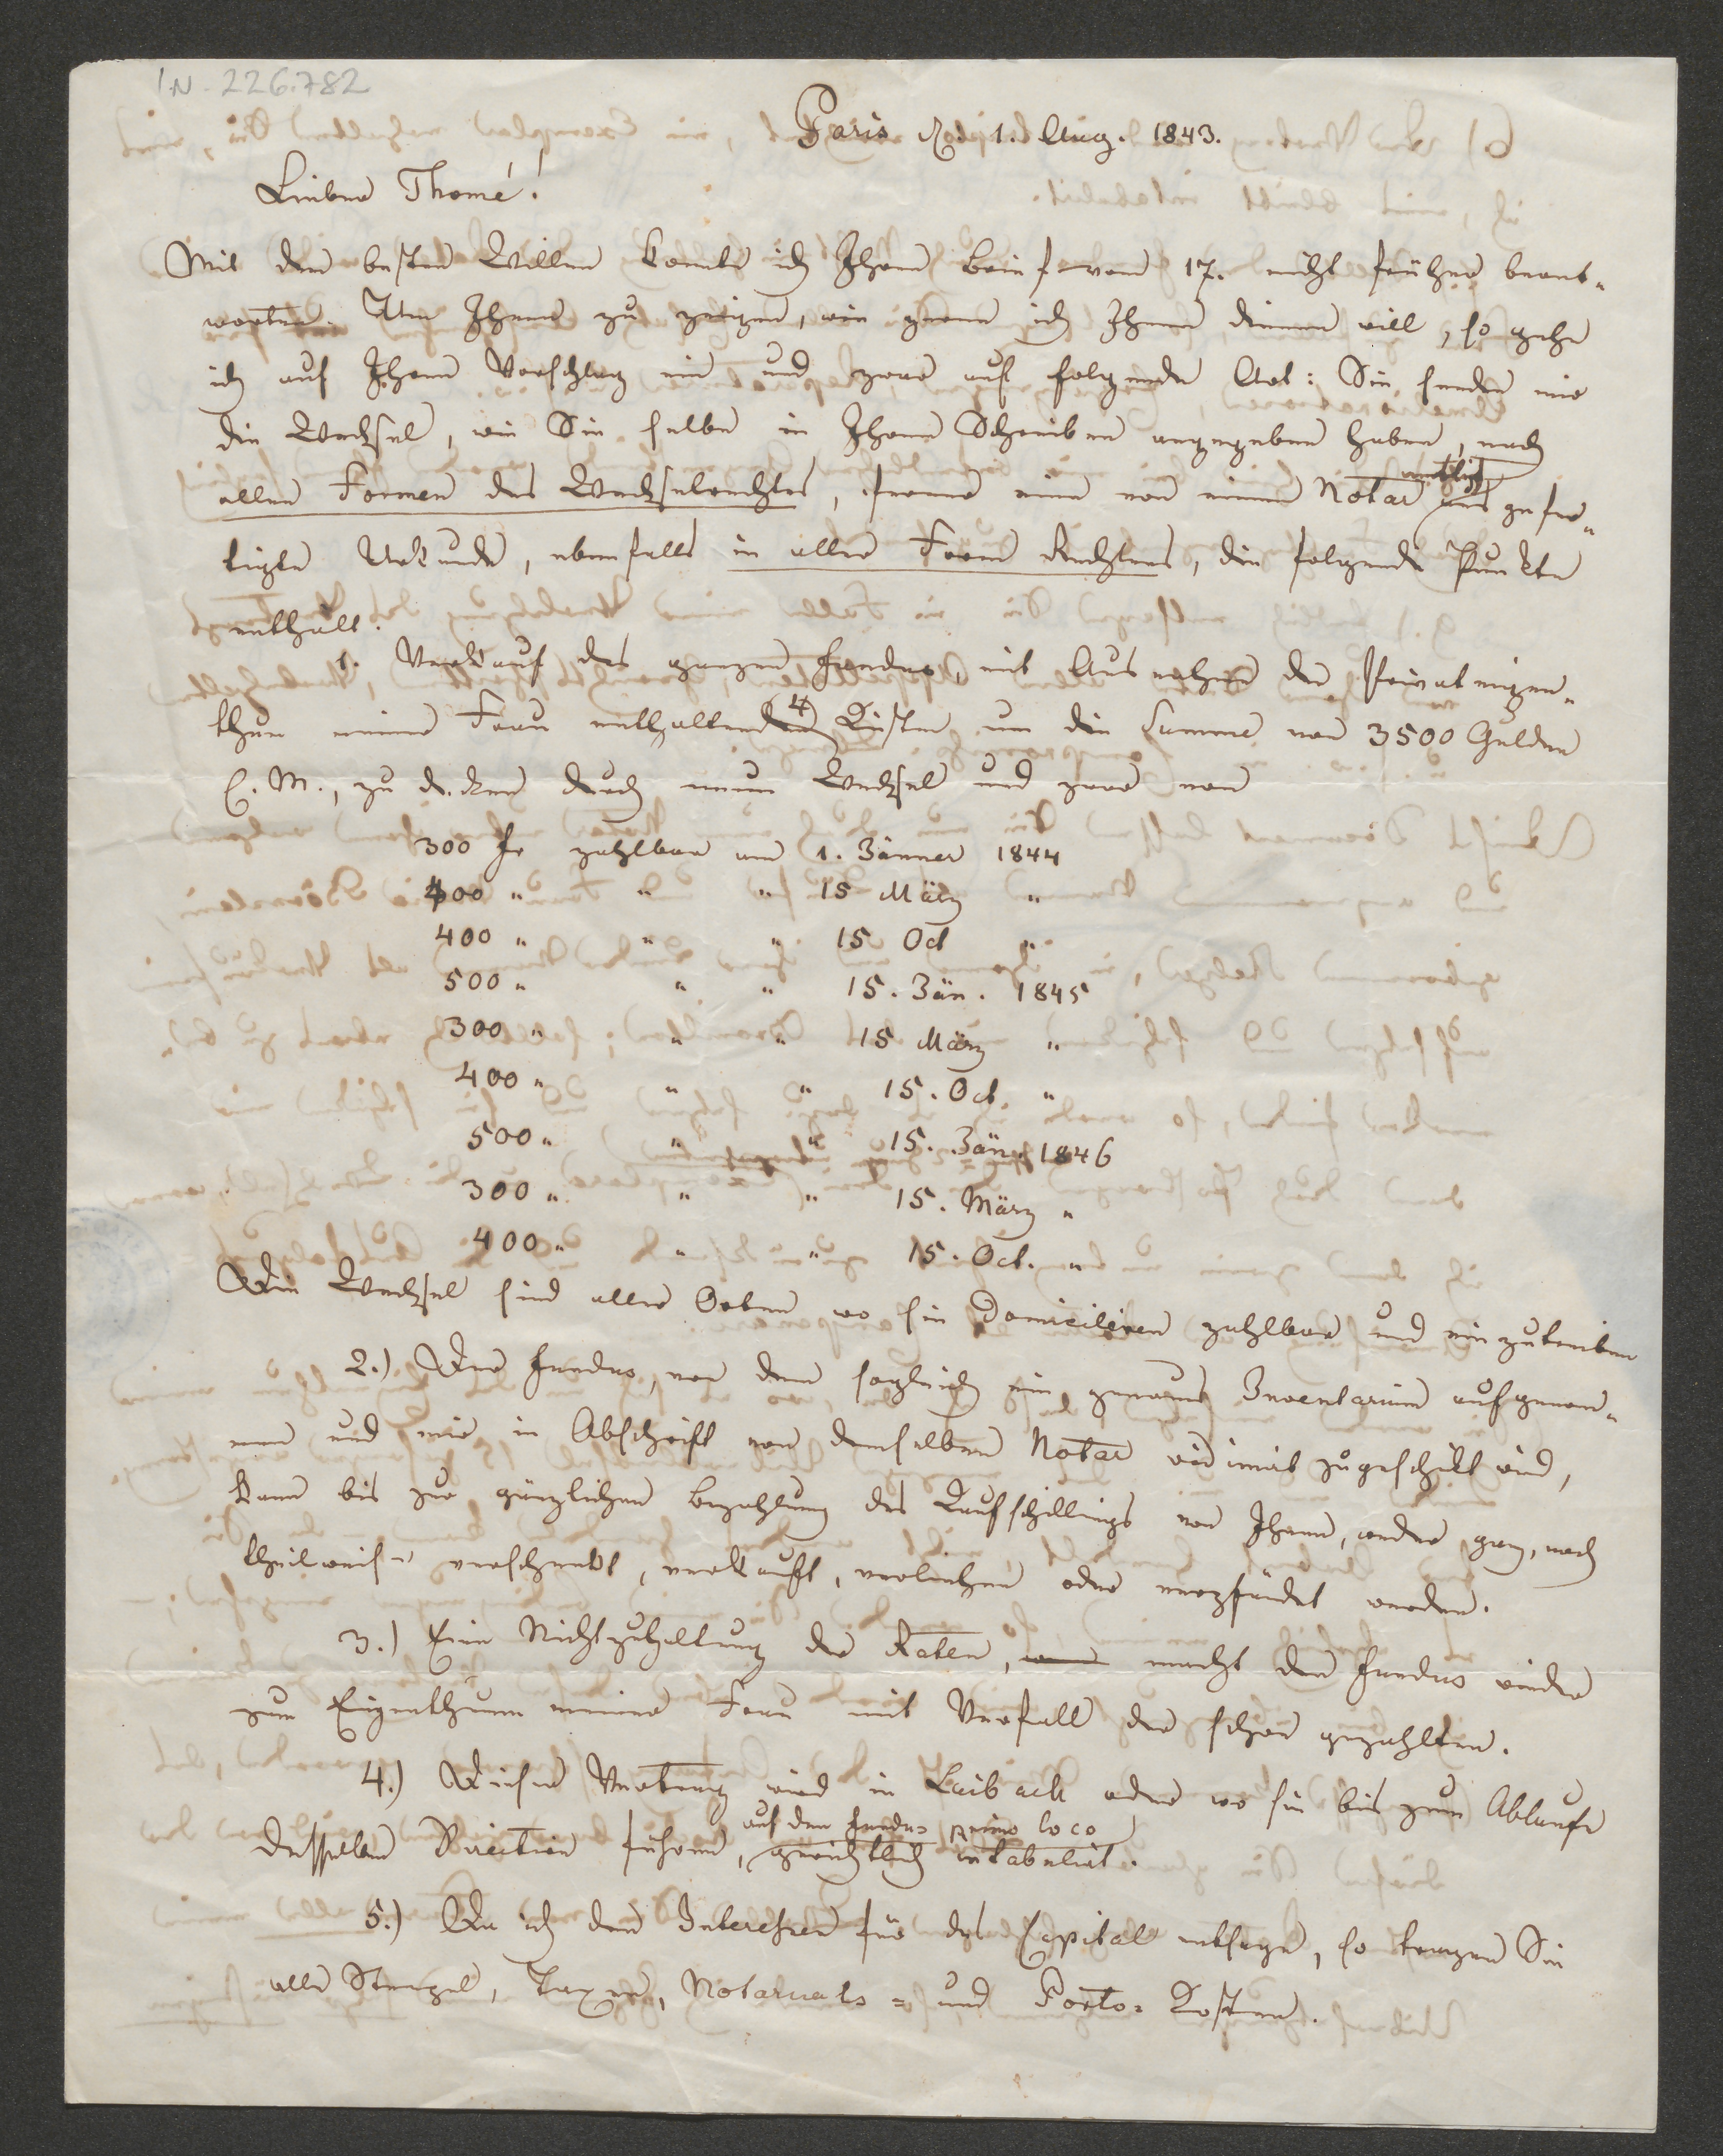 IN. 226.782
Paris d. 1. Aug. 1843.
Lieber Thomé!
Mit dem besten Willen konnte ich Ihren Brief vom 17. nicht früher beant-
worten. Um Ihnen zu zeigen, wie gerne ich Ihnen dienen will, so gehe
ich auf Ihren Vorschlag ein und zwar auf folgende Art: Sie senden mir
die Wechsel, wie Sie selbe in Ihrem Schreiben angegeben haben, nach
allen Formen des Wechselrechtes, ferner eine von einem Notar ausgefer-
tigte Urkunde, ebenfalls in aller Form Rechtens, die folgende Punkte
enthält.
1. Verkauf des ganzen Fundus, mit Ausnahme der Privateigen-
thum meiner Frau enthaltenden 4 Kisten um die Summe von 3500 Gulden
C. M., zu decken durch neun Wechsel und zwar von
300 fr zahlbar am 1. Jänner 1844
400 " " " 15 März "
400 " " " 15 Oct "
500 " " " 15. Jän. 1845
300 " " " 15 März "
400 " " " 15. Oct. "
500 " " " 15. Jän. 1846
300 " " " 15. März "
400 " " " 15. Oct. "
Die Wechsel sind aller Orten wo sie domiciliren zahlbar und einzutreiben
2.) Der Fundus, von dem sogleich ein genaues Inventarium aufgenom-
men und mir in Abschrift von demselben Notar vidimirt zugeschikt wird,
kann bis zur gänzlichen Bezahlung des Kaufschillings von Ihnen, weder ganz, noch
theilweise verschenkt, verkauft, verliehen oder verpfändet werden.
3.) Eine Nichtzuhaltung der Raten, macht den Fundus wieder
zum Eigenthum meiner Frau mit Verfall der schon gezahlten.
4.) Dieser Vertrag wird in Laibach oder wo sie bis zum Ablaufe
auf den Fundus primo loco
desselben Direction führen, gerichtlich intabulirt.
5.) Da ich den Interessen für das Capital entsage, so tragen Sie
alle Stempel, Taxen, Notariats- und Porto-Kosten.